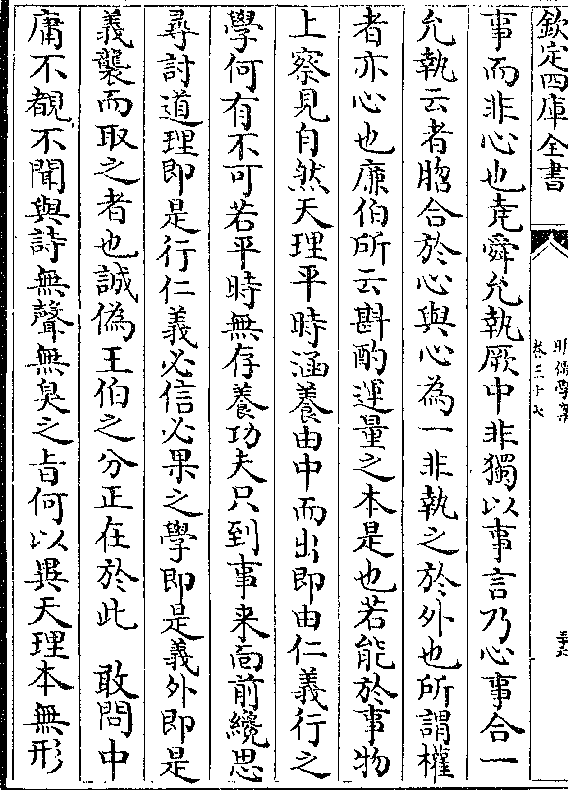 欽定四庫全書
明儒學案
卷三十七
事而非心也堯舜允執厥中非獨以事言乃心事合一
允執云者脗合於心與心為一非執之於外也所謂權
者亦心也廉伯所云斟酌運量之本是也若能於事物
上察見自然天理平時涵養由中而出即由仁義行之
學何有不可若平時無存養功夫只到事来面前纔思
尋討道理即是行仁義必信必果之學即是義外即是
義襲而取之者也誠偽王伯之分正在於此 敢問中
庸不覩不聞與詩無聲無臭之㫖何以異天理本無形